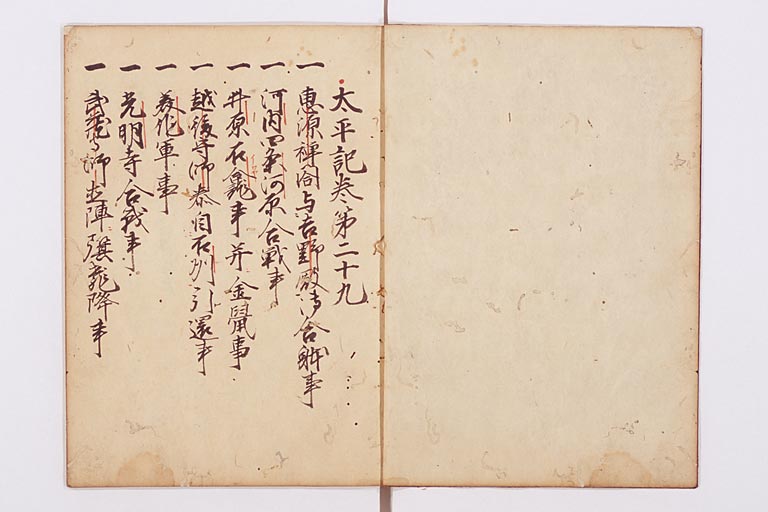 太平記巻第二十九
一 恵源禅閤与吉野殿御合躰事
一 河内四条河原合戦事
一 井原石龕事并金鼠事
一 越後守師泰自石州引還事
一 美作軍事
一 光明寺合戦事
一 武蔵守師直陣旗飛降事